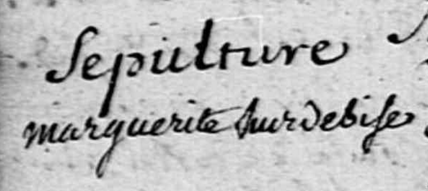 Sepulture
marguerite hurdebise